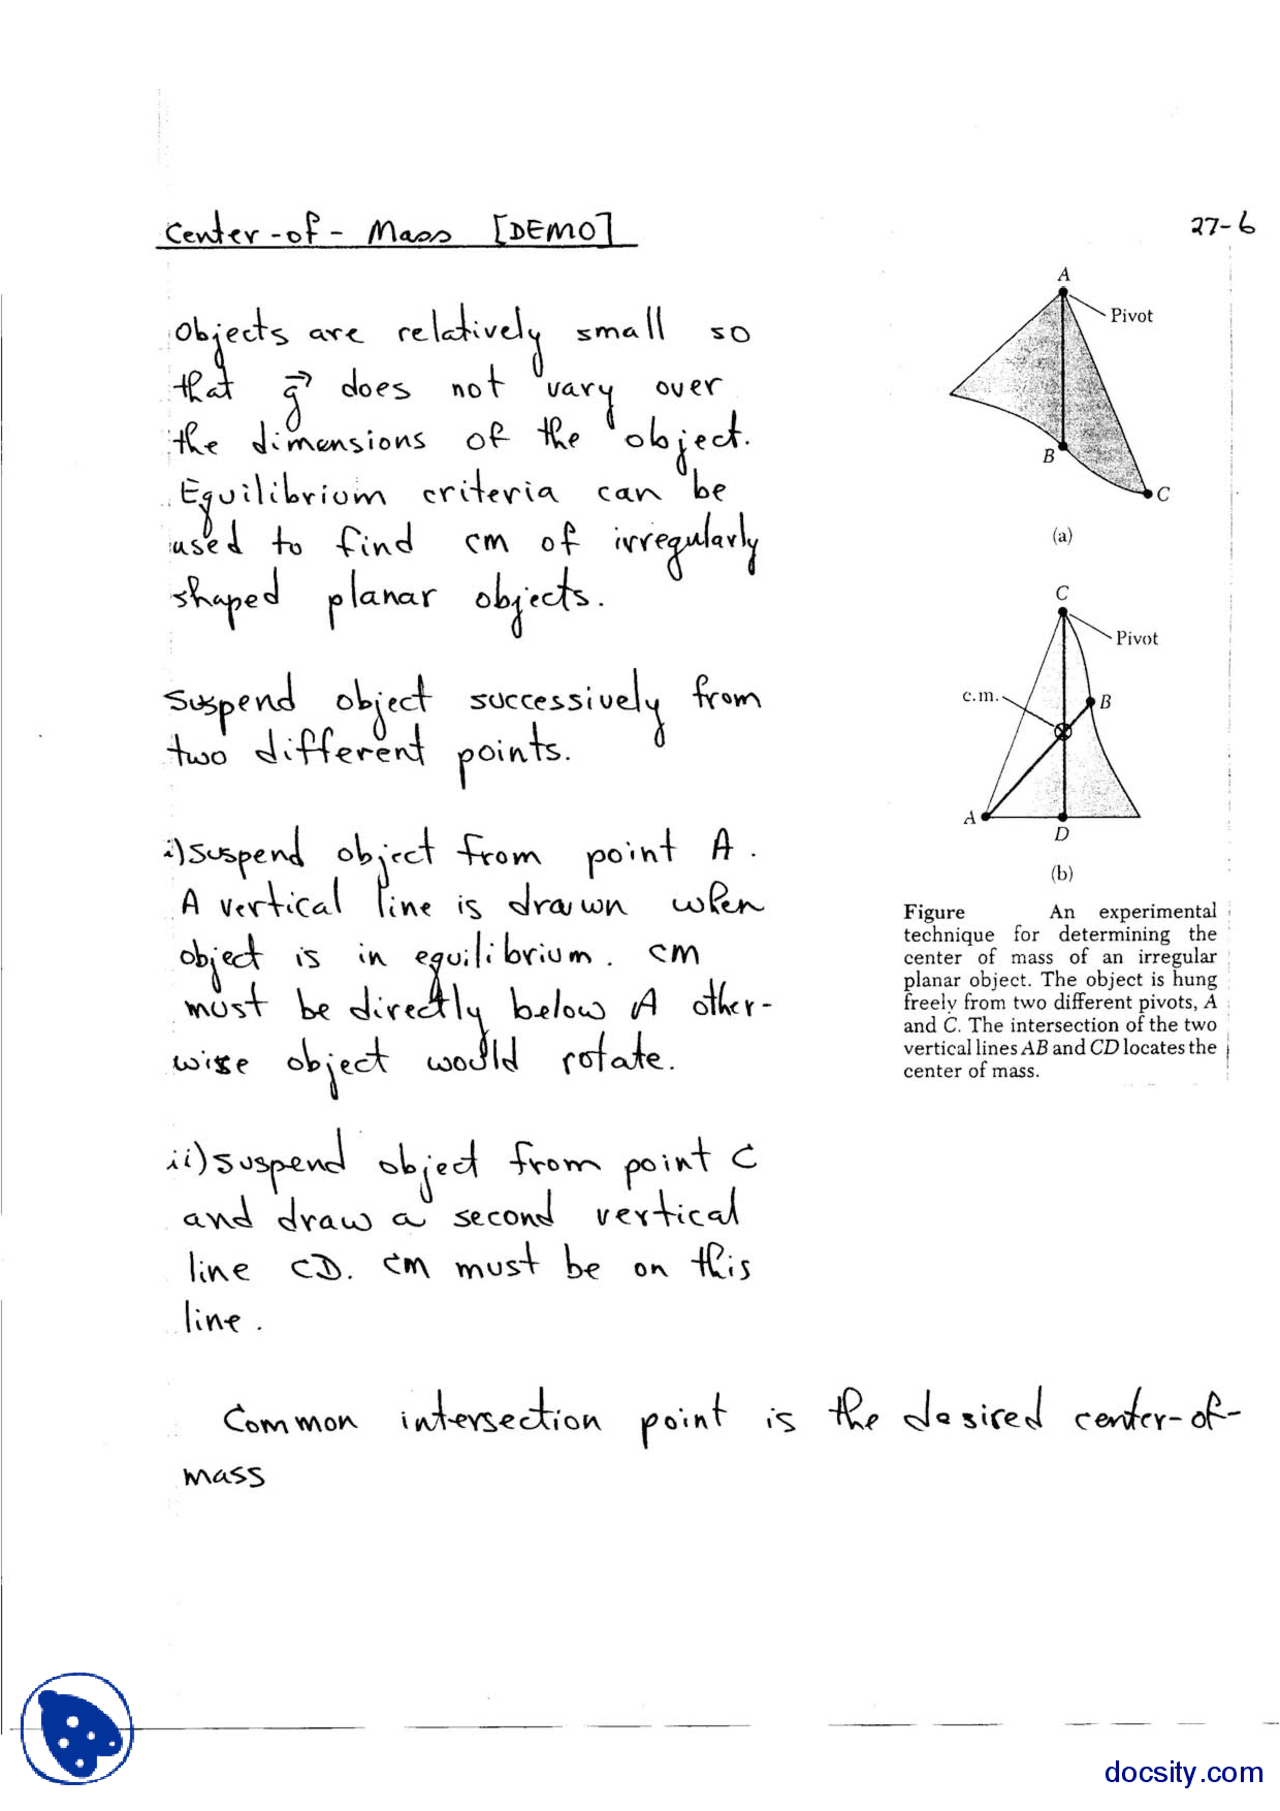 Center-of-Mass [DEMO]
27-6
Objects are relatively small so
that g⃗ does not vary over
the dimensions of the object.
Equilibrium criteria can be
used to find cm of irregularly
shaped planar objects.
Suspend object successively from
two different points.
i) Suspend object from point A.
A vertical line is drawn when
object is in equilibrium. cm
must be directly below A other-
wise object would rotate.
ii) Suspend object from point C
and draw a second vertical
line CD. cm must be on this
line.
Common intersection point is the desired center-of-
mass
A
Pivot
B
C
(a)
C
Pivot
c.m.
B
A
D
(b)
Figure An experimental
technique for determining the
center of mass of an irregular
planar object. The object is hung
freely from two different pivots, A
and C. The intersection of the two
vertical lines AB and CD locates the
center of mass.
docsity.com